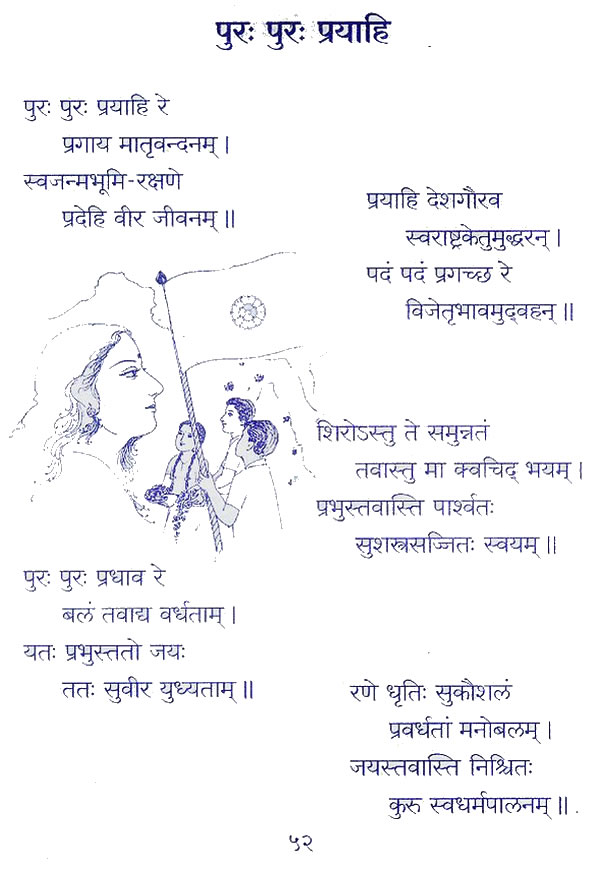 पुरः पुरः प्रयाहि
पुरः पुरः प्रयाहि रे
प्रगाय मातृवन्दनम् ।
स्वजन्मभूमि-रक्षणे
प्रदेहि वीर जीवनम् ॥
प्रयाहि देशगौरव
स्वराष्ट्रकेतुमुद्धरन् ।
पदं पदं प्रगच्छ रे
विजेतृभावमुद्‌वहन् ॥
शिरोऽस्तु ते समुन्नतं
तवास्तु मा क्वचिद् भयम् ।
प्रभुस्तवास्ति पार्श्वतः
सुशस्त्रसज्जितः स्वयम् ॥
पुरः पुरः प्रधाव रे
बलं तवाद्य वर्धताम् ।
यतः प्रभुस्ततो जयः
ततः सुवीर युध्यताम् ॥
रणे धृतिः सुकौशलं
प्रवर्धतां मनोबलम् ।
जयस्तवास्ति निश्चितः
कुरु स्वधर्मपालनम् ॥
५२